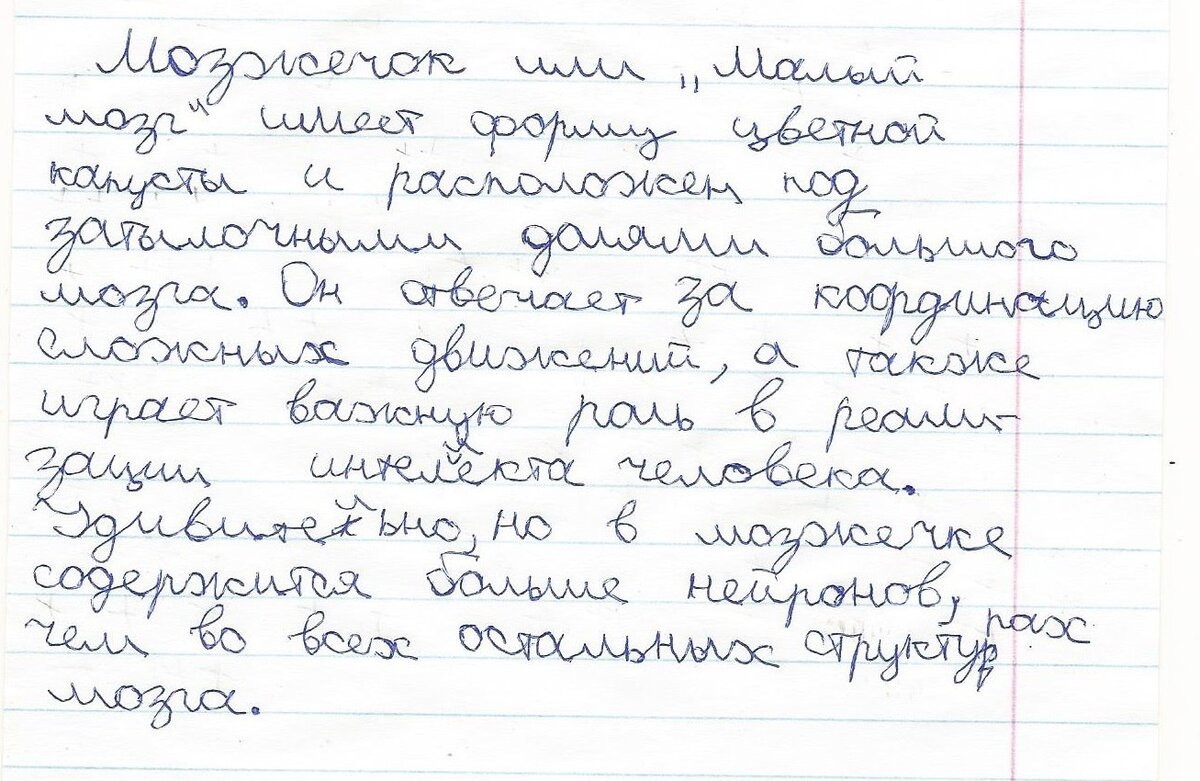 Мозжечок или „Малый
мозг" имеет форму цветной
капусты и расположен под
затылочными долями большого
мозга. Он отвечает за координацию
сложных движений, а также
играет важную роль в реали-
зации интеллекта человека.
Удивительно, но в мозжечке
содержится больше нейронов,
чем во всех остальных структурах
мозга.